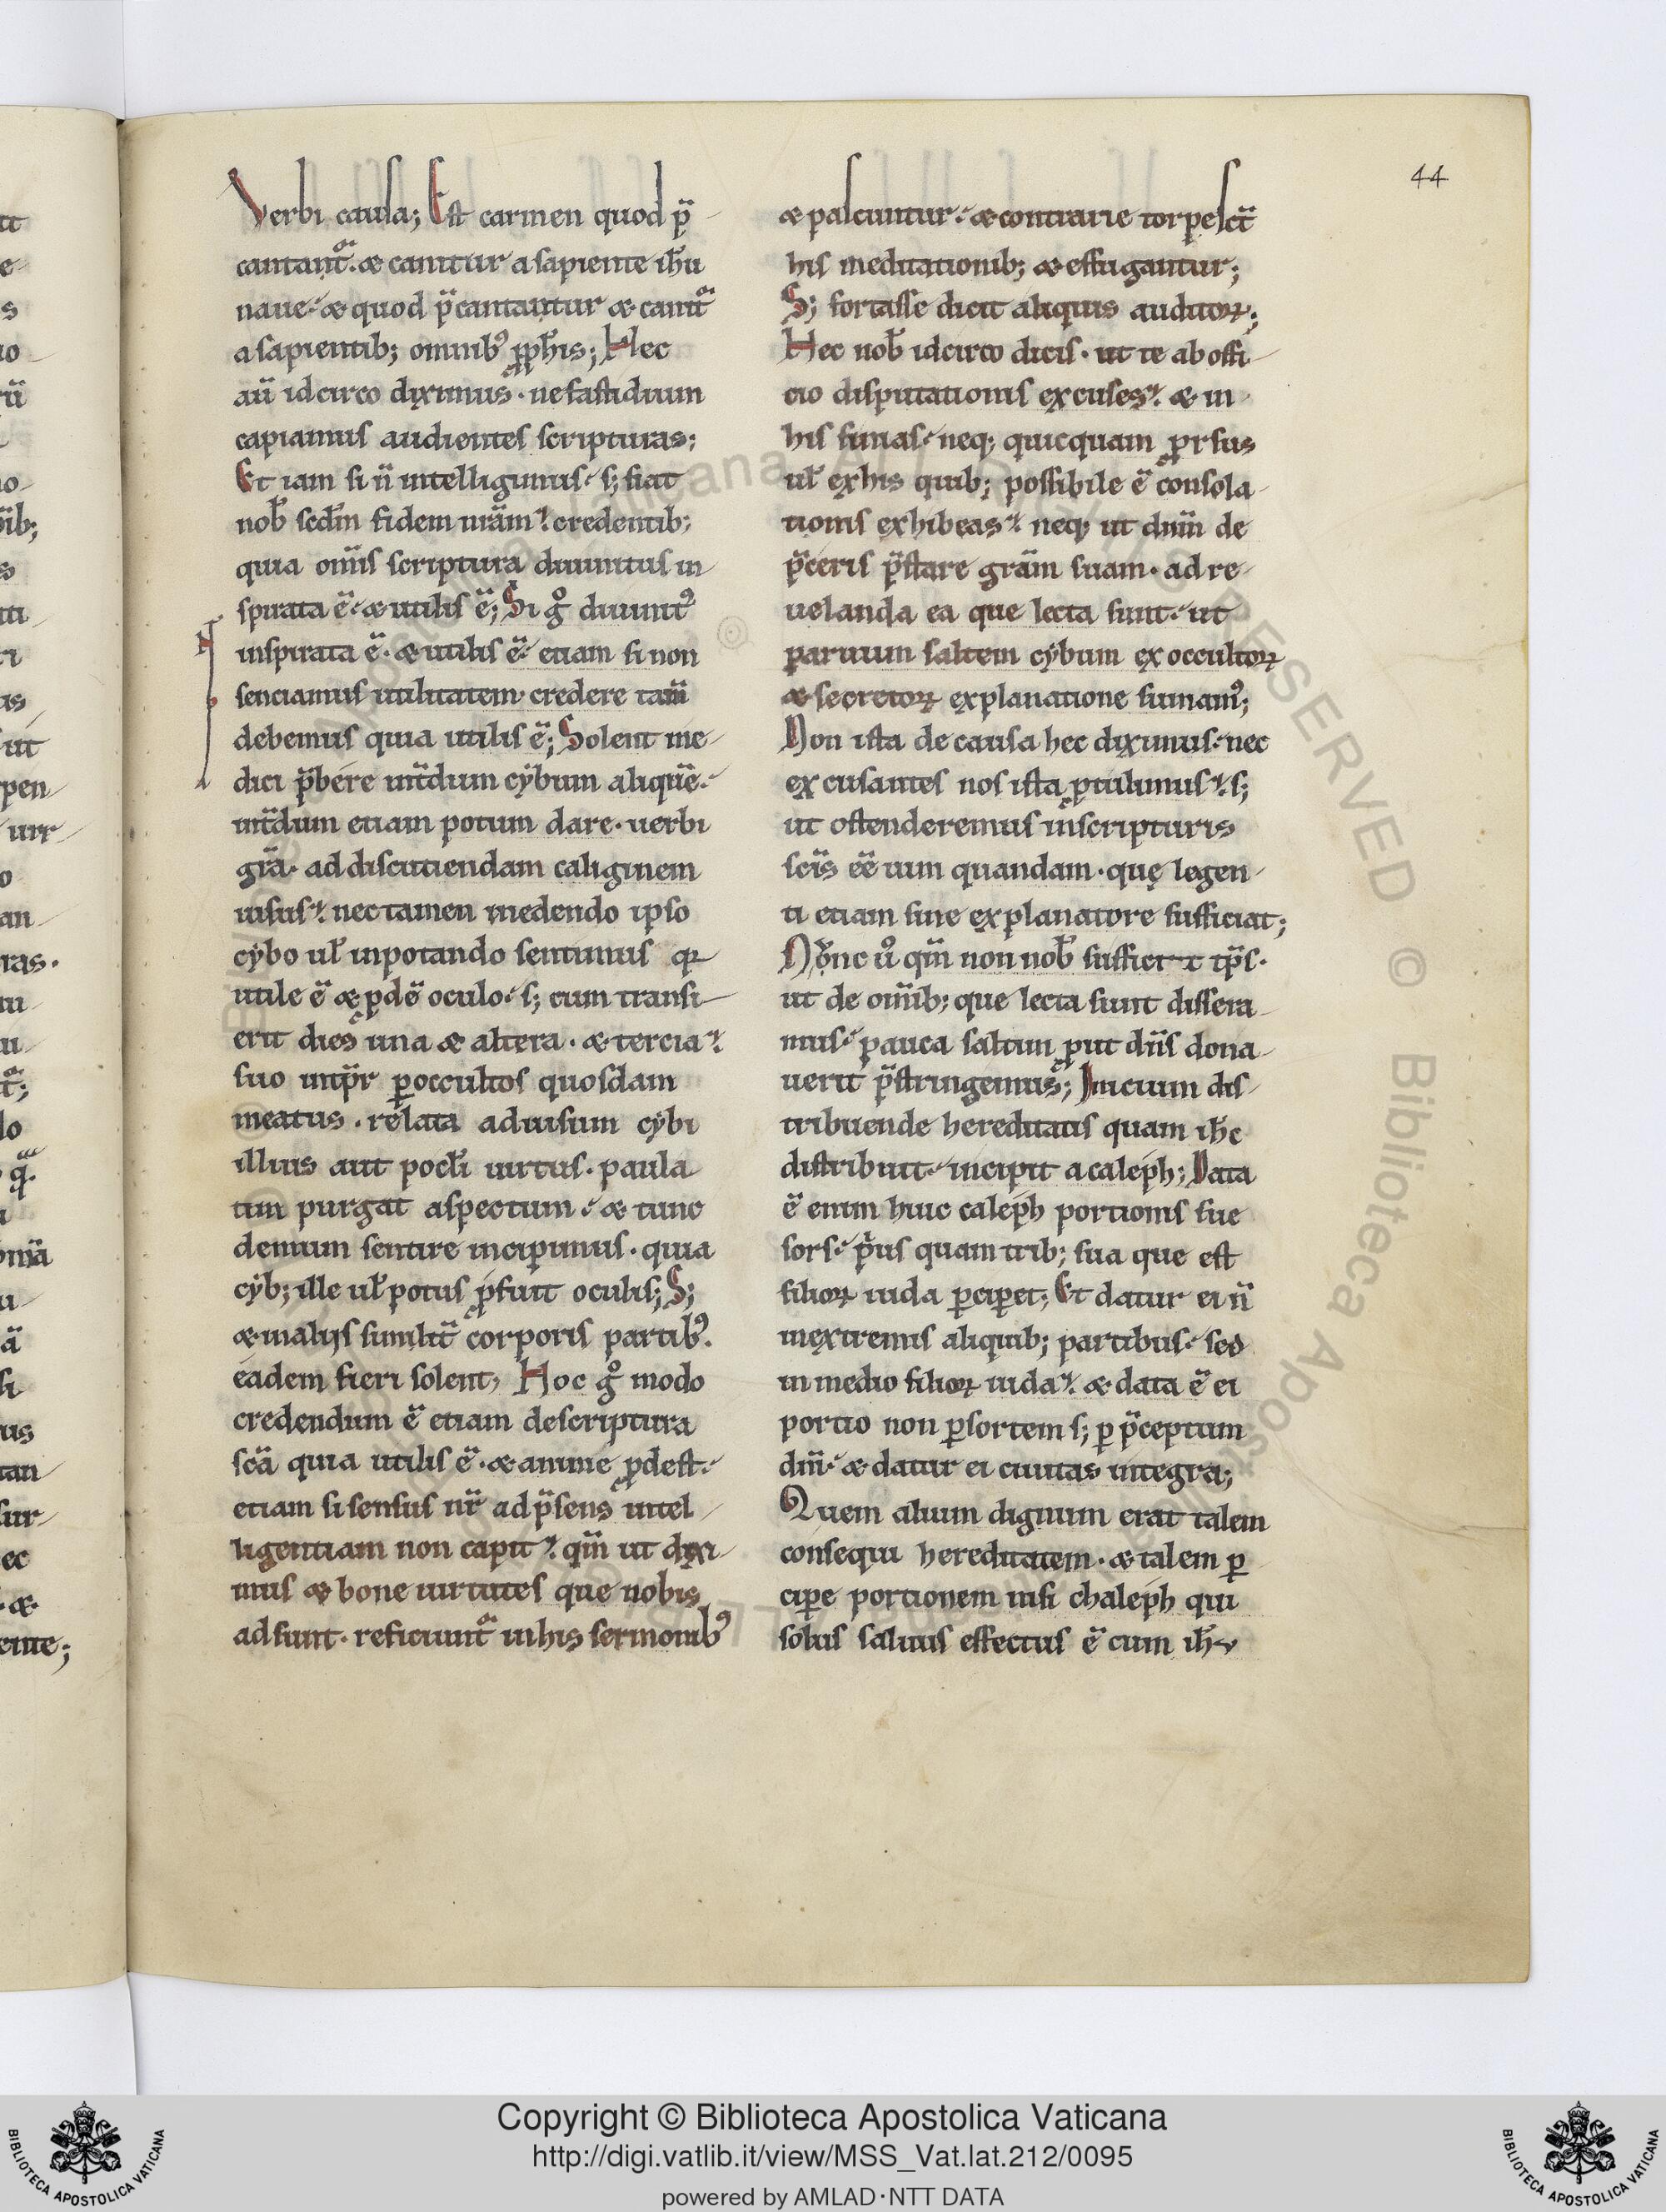 44
Verbi causa; Est carmen quod p̄
cantant᷑. & canitur a sapiente ih̄u
naue & quod p̄cantantur & canit᷑
a sapientib; omnib⁹ ꝓph̄is; Hec
aū idcirco diximus · ne fastidium
capiamus audientes scripturas;
Et iam si n̄ intelligimus s; fiat
nob̄ scd̄m fidem nr̄am credentib;
quia om̄is scriptura diuinitus in
spirata ē & utilis ē; Si g̊ diuinit⁹
inspirata ē · & utilis ē etiam si non
senciamus utilitatem credere tam̄
debemus quia utilis ē; Solent me
dici p̄bere int̄dum cybum aliquē
int̄dum etiam potum dare · uerbi
gr̄a · ad discutiendam caliginem
uisus nec tamen medendo ipso
cybo ul̄ in potando sentimus qꝛ
utile ē & ꝓdē oculo s; cum transi
erit dies una & altera · & tercia
suo int̄pr̄ ꝑ occultos quosdam
meatus · relata ad uisum cybi
illius aut poc̄li uirtus · paula
tim purgat aspectum & tunc
demum sentire incipimus · quia
cyb; ille ul̄ potus ꝓfuit oculis; S;
& in alijs similit̄ corporis partib⁹.
eadem fieri solent; Hoc g̊ modo
credendum ē etiam de scriptura
sc̄a quia utilis ē · & anime ꝓdest
etiam si sensus nr̄ ad p̄sens intel
ligentiam non capit qm̄ ut dixi
mus & bone uirtutes que nobis
adsunt · reficiunt᷑ in his sermonib⁹
& pascuntur & contrarie torpesct̄
his meditationib; & effugantur;
S; fortasse dicit aliquis auditoꝝ;
Hec nob̄ idcirco dicis · ut te ab offi
cio disputationis excuses & in
his finias neq; quicquam ꝓrsus
ul̄ ex his quib; possibile ē consola
tionis exhibeas neq; ut dn̄m de
p̄ceris p̄stare gr̄am suam · ad re
uelanda ea que lecta sunt ut
paruum saltem cybum ex occultoꝝ
& secretoꝝ explanatione sumam⁹;
Non ista de causa hec diximus nec
excusantes nos ista ꝓtulimus s;
ut ostenderemus in scripturis
sc̄is ēē uim quandam · quę legen
ti etiam sine explanatore sufficiat;
N̊nc u̇̊ qm̄ non nob̄ sufficit tp̄s ·
ut de om̄ib; que lecta sunt dissera
mus pauca saltim ꝓut dn̄s dona
uerit p̄stringemus; Inicium dis
tribuende hereditatis quam ih̄c
distribuit incipit a caleph; Data
ē enim huic caleph portionis sue
sors p̄us quam trib; sua que est
filioꝝ iuda ꝑciꝑet; Et datur ei n̄
in extremis aliquib; partibus sed
in medio filioꝝ iuda & data ē ei
portio non ꝑ sortem s; ꝑ p̄ceptum
dn̄i & datur ei ciuitas integra;
Quem alium dignum erat talem
consequi hereditatem · & talem ꝑ
ciꝑe portionem nisi chaleph qui
solus saluus effectus ē cum ih̄u
Copyright © Biblioteca Apostolica Vaticana
http://digi.vatlib.it/view/MSS_Vat.lat.212/0095
powered by AMLAD·NTT DATA
BIBLIOTECA APOSTOLICA VATICANA
BIBLIOTECA APOSTOLICA VATICANA